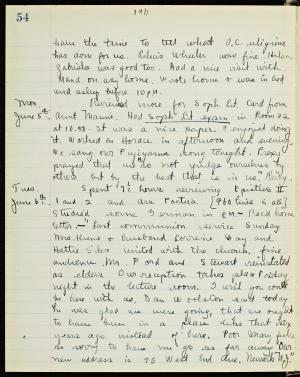 54
1911
have the time to tell what V.C. religions
has done for us. Lewis Wheeler was fine. Helen
Gabriels was good too. Had a nice visit with
on way home. Wrote home & was in bed
and asleep before 10 P.M.
Mon. Reviewed more for Soph. Lit. Card from
June 5th. Aunt Mamie. Had Soph Lit exam in Room 22
at 10.00. It was a nice paper. I enjoyed doing
it. Worked in Horace in afternoon and evening
We sang our Fujiyama song tonight. Prexy
prayed that we do not judge ourselves by
others but by the best that is in us.
Tues. Spent 7½ hours reviewing Epistles II
June 6th. 1 and 2 and Ars Poetica [960 lines in all]
Studied some German in P.M. – Rec'd home
letter. – "Last communion service Sunday
Mrs. and husband Lorraine Day and
Hattie Siles united with the church. Fine
audience. Mr. Ford and Stewart reinstated
as elders. Our reception takes place Friday
night in the lecture room. I wish you could
be here with us. Dan Woolston said today
he was glad we were going, that we ought
to have been in a place like that six
years ago instead of here. Poor Granny feels
so sorry to have me go so far away. Our
new address is 25 West End Ave. Newark N.J."